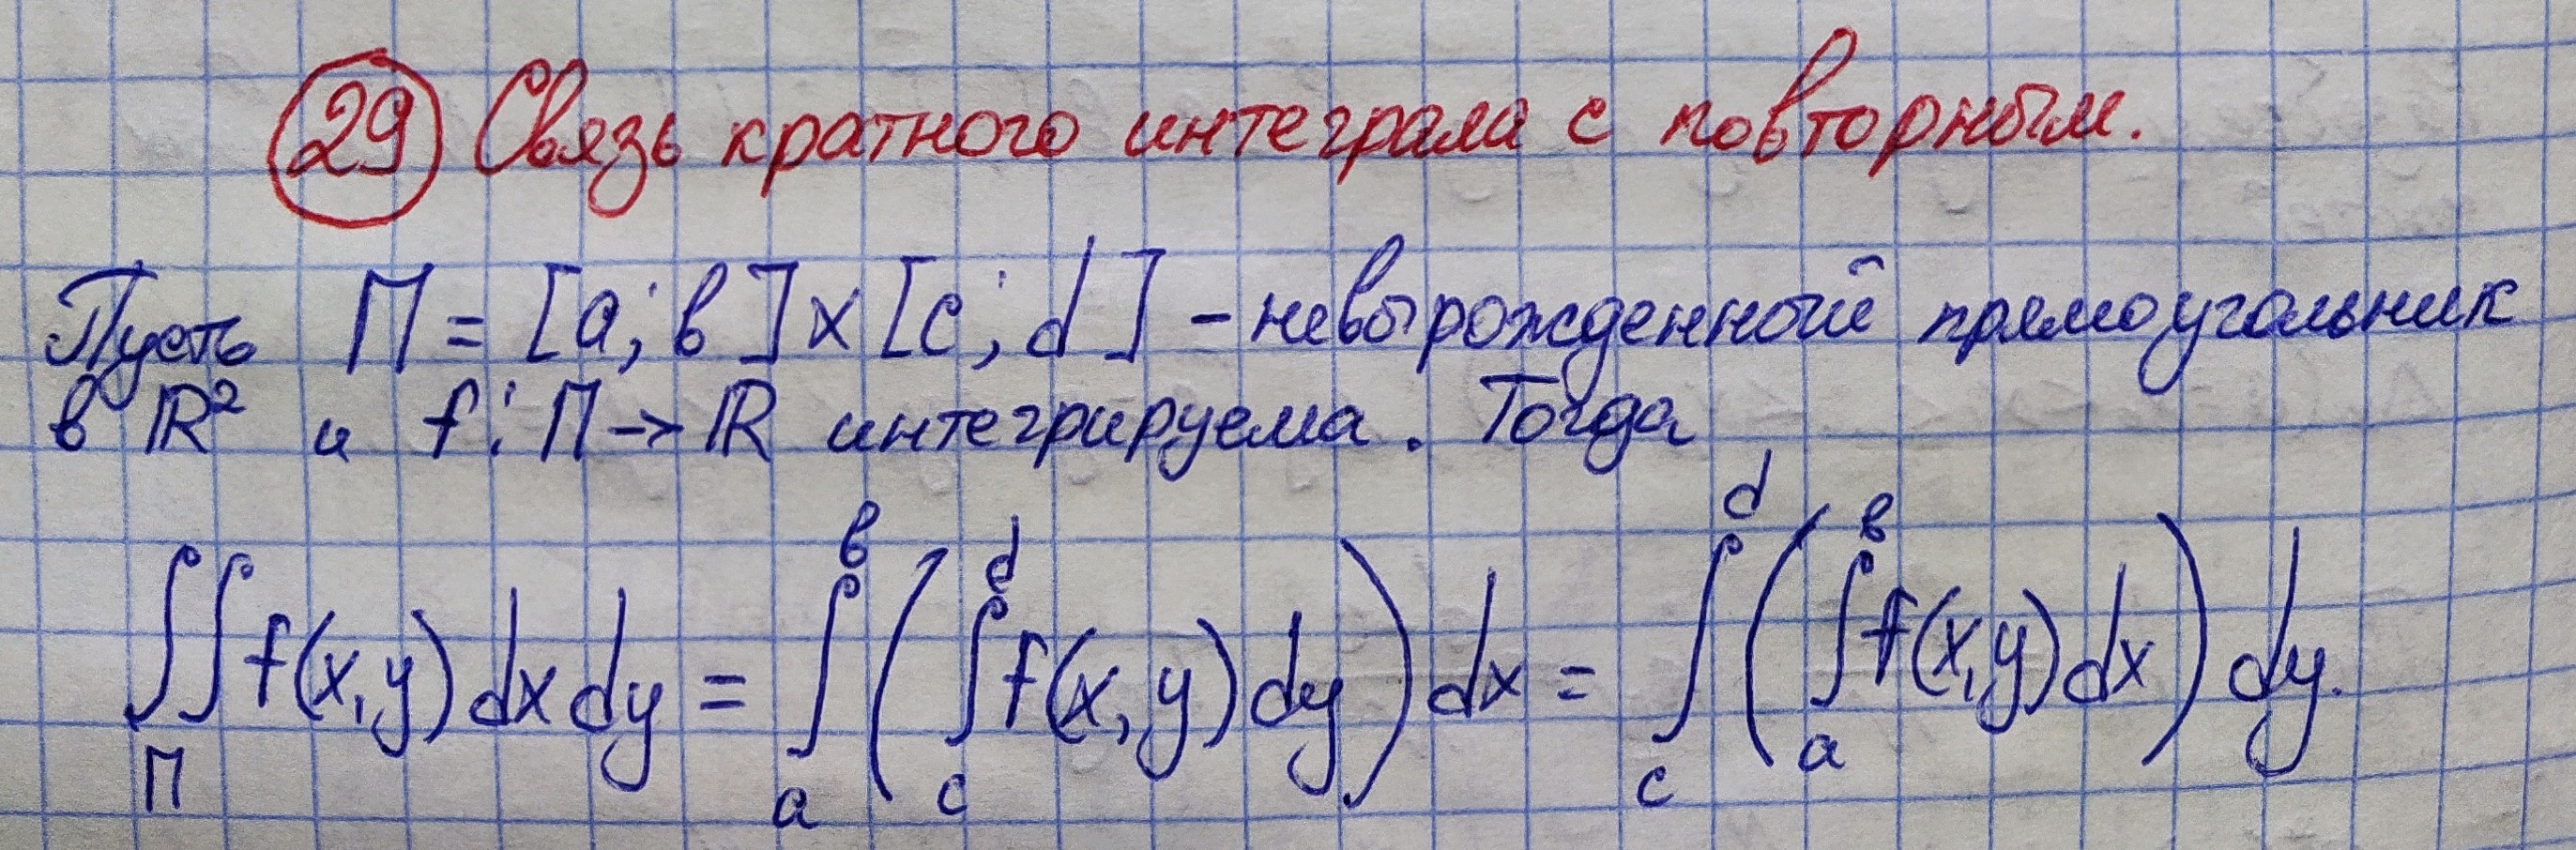 29 Связь кратного интеграла с повторным.
Пусть П = [a; b] x [c; d] – невырожденный прямоугольник
в ℝ² и f: П → ℝ интегрируема. Тогда
∬_П f(x,y) dx dy = ∫_a^b (∫_c^d f(x,y) dy) dx = ∫_c^d (∫_a^b f(x,y) dx) dy.